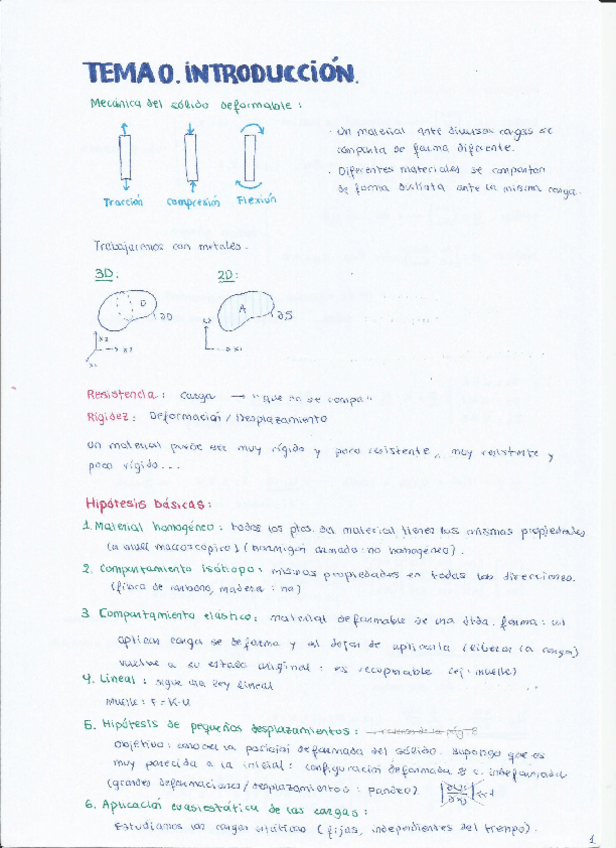 TEMA 0. INTRODUCCIÓN.
Mecánica del sólido deformable:
· Un material ante diversas cargas se
comporta de forma diferente.
· Diferentes materiales se comportan
de forma distinta ante la misma carga.
Tracción Compresión Flexión
Trabajaremos con metales.
3D: 2D:
D ∂D A ∂S
x3
x2 x1
x1
Resistencia: carga → "que no se rompa"
Rigidez: Deformación / Desplazamiento
Un material puede ser muy rígido y poco resistente, muy resistente y
poco rígido...
Hipótesis básicas:
1. Material homogéneo: todos los ptos. del material tienen las mismas propiedades
(a nivel macroscópico) (hormigón armado: no homogéneo).
2. Comportamiento isótropo: mismas propiedades en todas las direcciones.
(fibra de carbono, madera: no)
3. Comportamiento elástico: material deformable de una dtda. forma: al
aplicar carga se deforma y al dejar de aplicarla (liberar la carga)
vuelve a su estado original: es recuperable (ej: muelle)
4. Lineal: sigue una ley lineal
Muelle: F = K·u
5. Hipótesis de pequeños desplazamientos:
Objetivo: conocer la posición deformada del sólido. Supongo que es
muy parecida a la inicial: configuración deformada ≈ c. indeformada
(grandes deformaciones / desplazamientos: pandeo)
6. Aplicación cuasiestática de las cargas:
Estudiamos las cargas estáticas (fijas, independientes del tiempo).
1